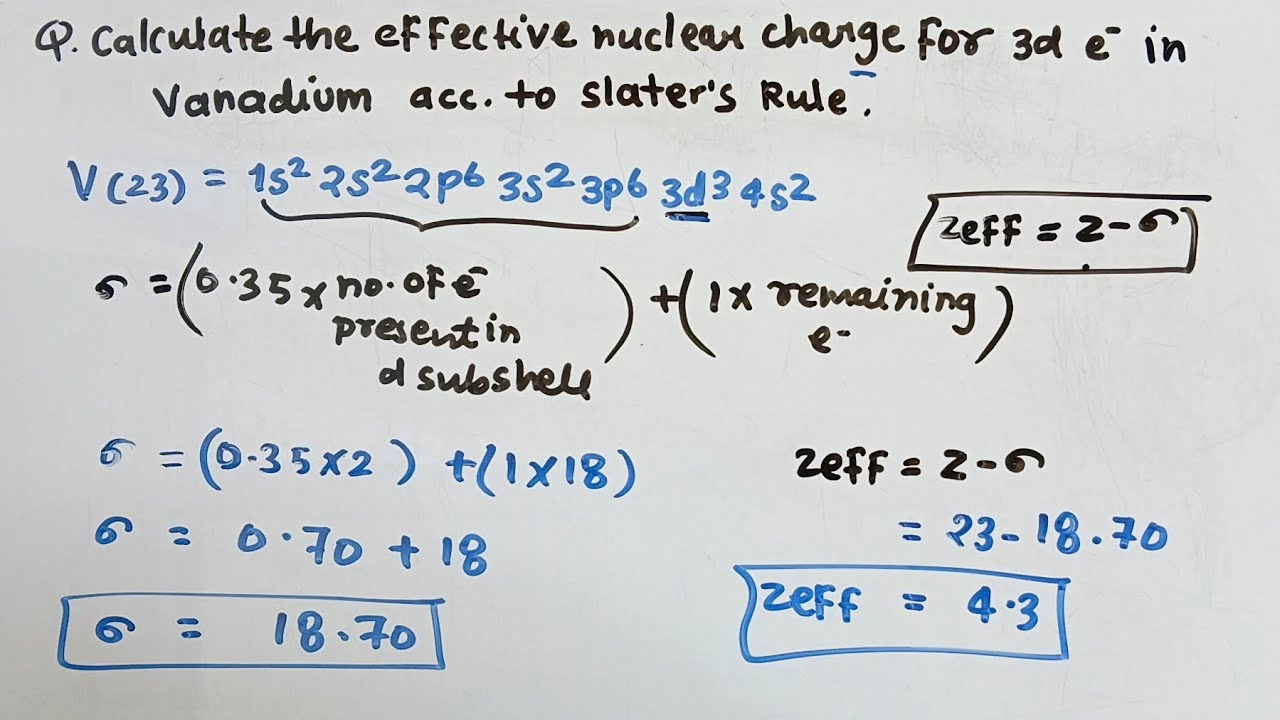 Q. Calculate the effective nuclear charge for 3d e⁻ in
Vanadium acc. to slater's Rule.
V(23) = 1s² 2s² 2p⁶ 3s² 3p⁶ 3d³ 4s²
Zeff = Z - σ
σ = (0.35 x no. of e⁻ present in d subshell) + (1 x remaining e⁻)
σ = (0.35 x 2) + (1 x 18)
σ = 0.70 + 18
σ = 18.70
Zeff = Z - σ
= 23 - 18.70
Zeff = 4.3